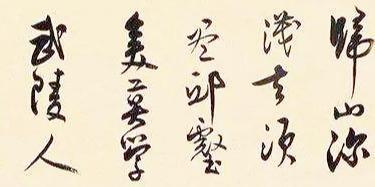 歸山深
淺去須
盡邱壑
美莫学
武陵人